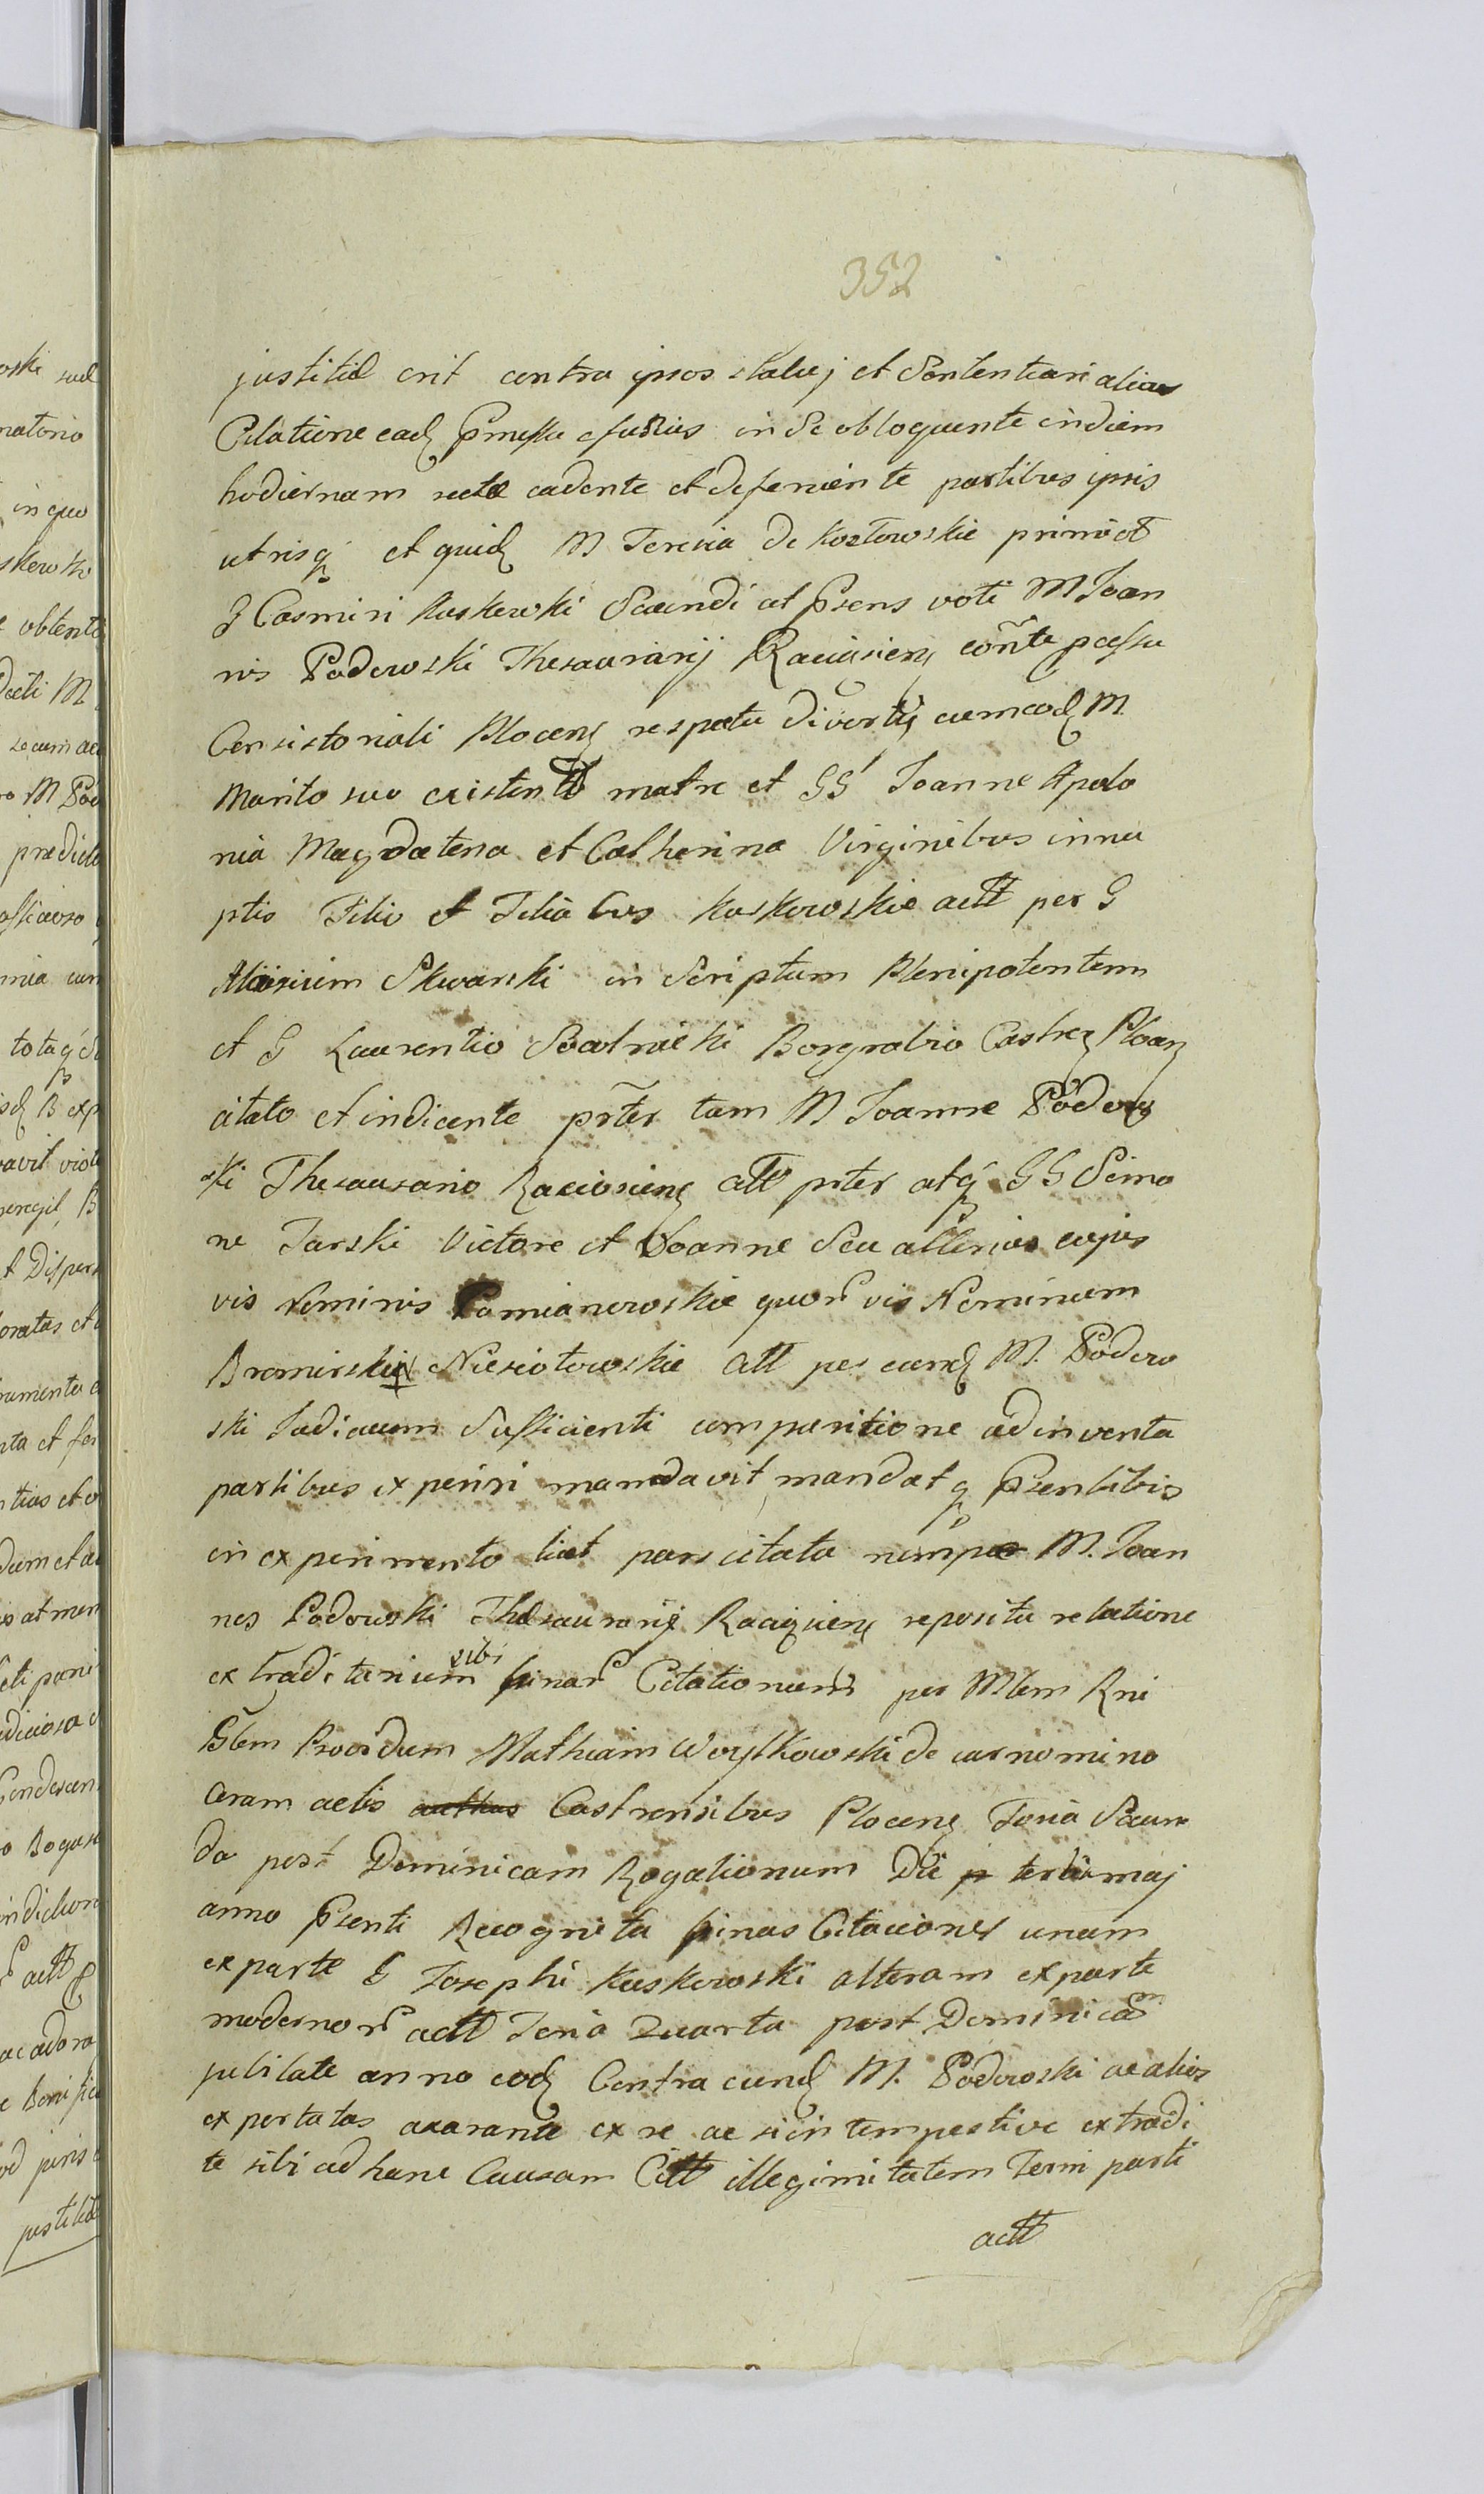 352
justitiæ erit contra ipsos statui et Sententiari alias
Citatione eadē præmissa fusius in Se obloquente in diem
hodiernam recte cadente et deferviente partibus ipsis
utrisq et quidē M Teresia de Kozłowskie primo et
G Casmiri Kuskowski Secundi at Prsens voti M Joan
nis Podowski Thesaurarij Raciąsiens coñte pcessu
Consistoriali Plocens respectu divortij cum eodē M.
Marito suo existente matre et GG Joanne Apolo
nia Magdalena et Catherina Virginibus innu
ptis Filio et Filiabus Kuskowskie actt per G
Aloisium Skwarski in Scriptum Plenipotentem
et G Laurentio Socolnicki Borgrabio Castreń Plocen
citato et indicente prter tam M Joanne Podow
ski Thesaurario Racionens citt prter atq GG Simo
ne Turski Victore et Joanne Seu alterius cujus
vis Nominis Damianowskie quorvis Nominum
Bromirskie Niesiołowskie Citt per eund M. Podow
ski Judicium Sufficienti comparitione adinventa
partibus experiri mandavit mandatq Prsentibus
in experimento licet pars citata nimpe M. Joan
nes Podowski Thesaurarij Raciążiens reposita relatione
extraditarium sibi binar Citationum per Mlem Rni
Glem Providum Mathiam Woytkowski de
coram actis Castrensibus Plocens Feria Secun
da post Dominicam Rogationum Die tertia maj
anno Prsenti Recognita binas Citationes unam
ex parte G Josephi Kuskowski alteram ex parte
modernor actt Feria Quarta post Dominicam
jubilate anno eodē Contra eund M. Podowski ac alios
expertatas exarante ex re ac si intempestive extradi
te sibi ad hanc Causam Citt illegimitatem Termi parti
actt